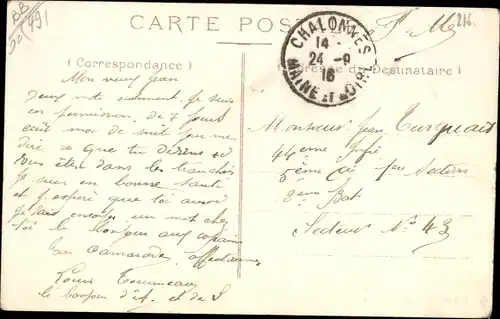 BB
491
CARTE POSTALE
F. M.
216.
CHALONNES
14 -
24 - 9
16
MAINE-ET-LOIRE
(Correspondance)
Adresse du Destinataire)
Mon vieux Jean
Deux mots seulement. Je suis
en permission de 7 jours
moi de suit pour me
dire ce que tu deviens si
vous êtes dans les tranchés
Je suis en bonne santé
et j'espère que toi aussi
Je vais envoyer un mot chez
toi le bonjour aux copains
Ton Camarade affectionné
Louis Tourneau
le bonjour d'A. et de S
Monsieur Jean Turquait
44eme Infie
5eme Cie 1re Section
2eme Bat
Secteur No 43